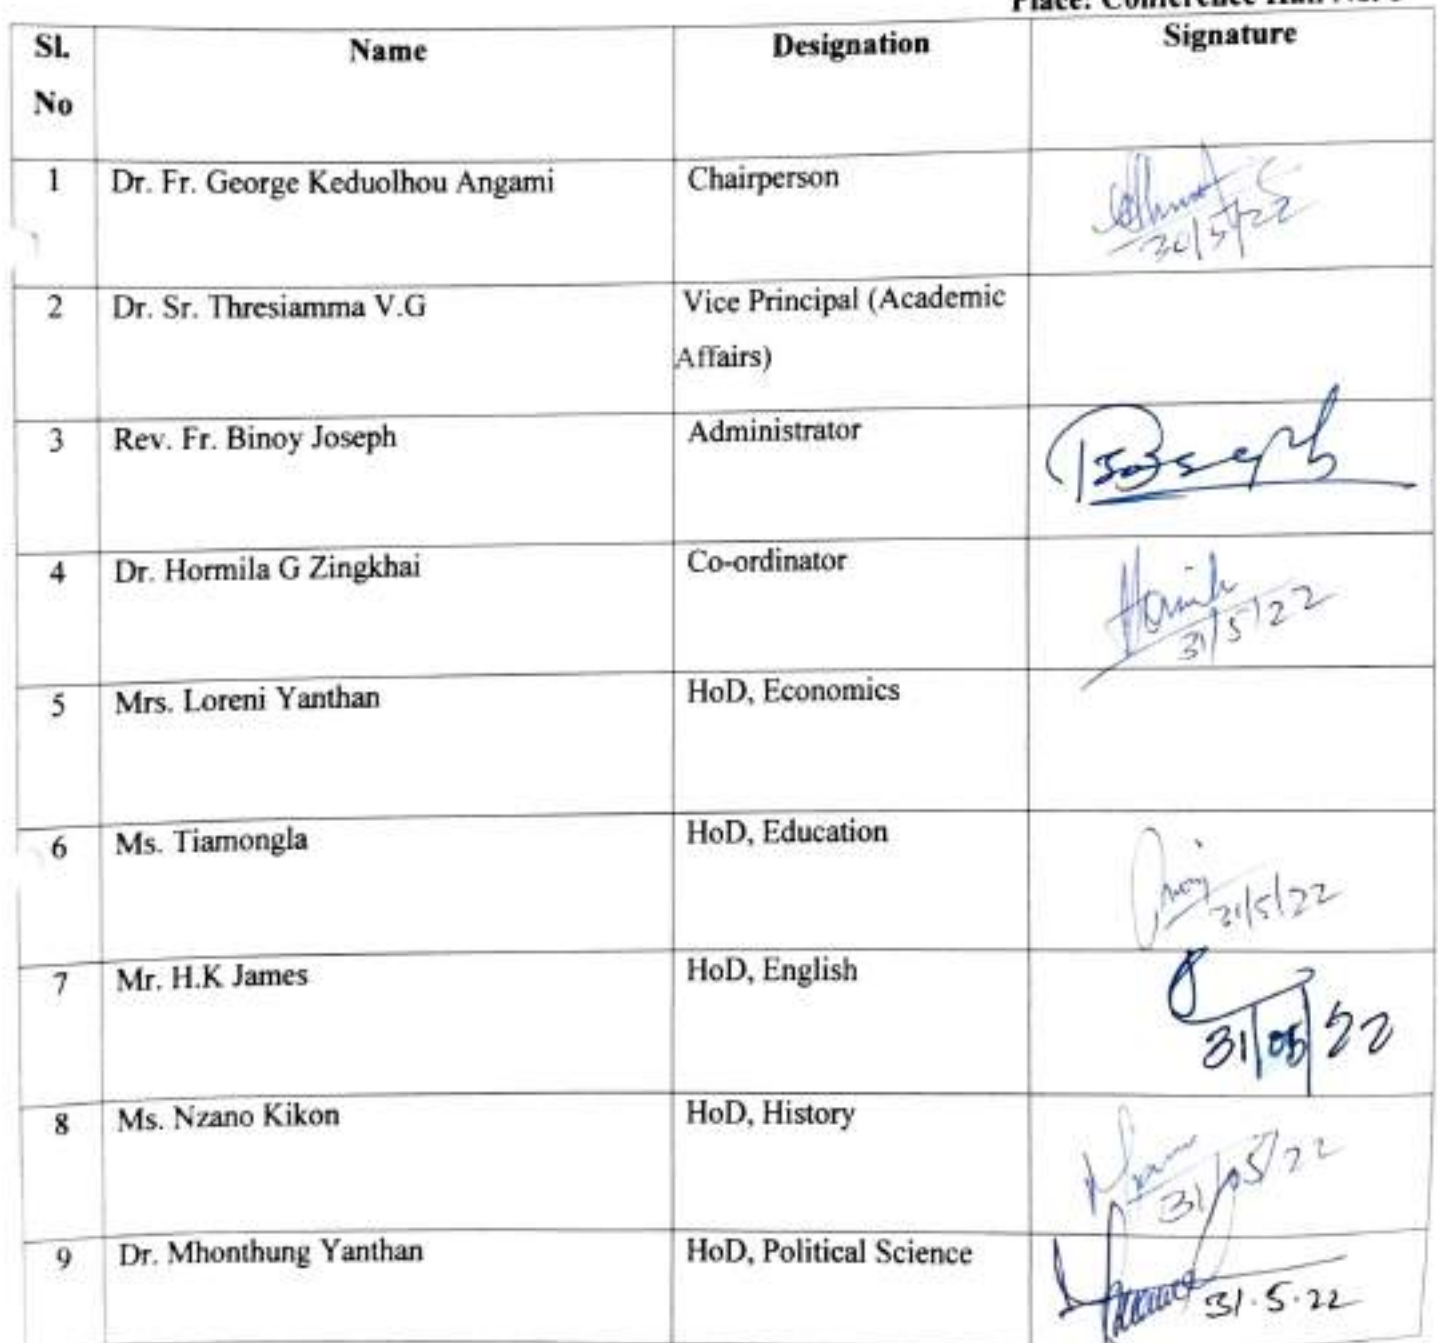 Place: Conference Hall No.
Sl. No Name Designation Signature
1 Dr. Fr. George Keduolhou Angami Chairperson
2 Dr. Sr. Thresiamma V.G Vice Principal (Academic
Affairs)
3 Rev. Fr. Binoy Joseph Administrator
4 Dr. Hormila G Zingkhai Co-ordinator
31/5/22
5 Mrs. Loreni Yanthan HoD, Economics
6 Ms. Tiamongla HoD, Education
31/5/22
7 Mr. H.K James HoD, English
31/05/22
8 Ms. Nzano Kikon HoD, History
31/05/22
9 Dr. Mhonthung Yanthan HoD, Political Science
31.5.22